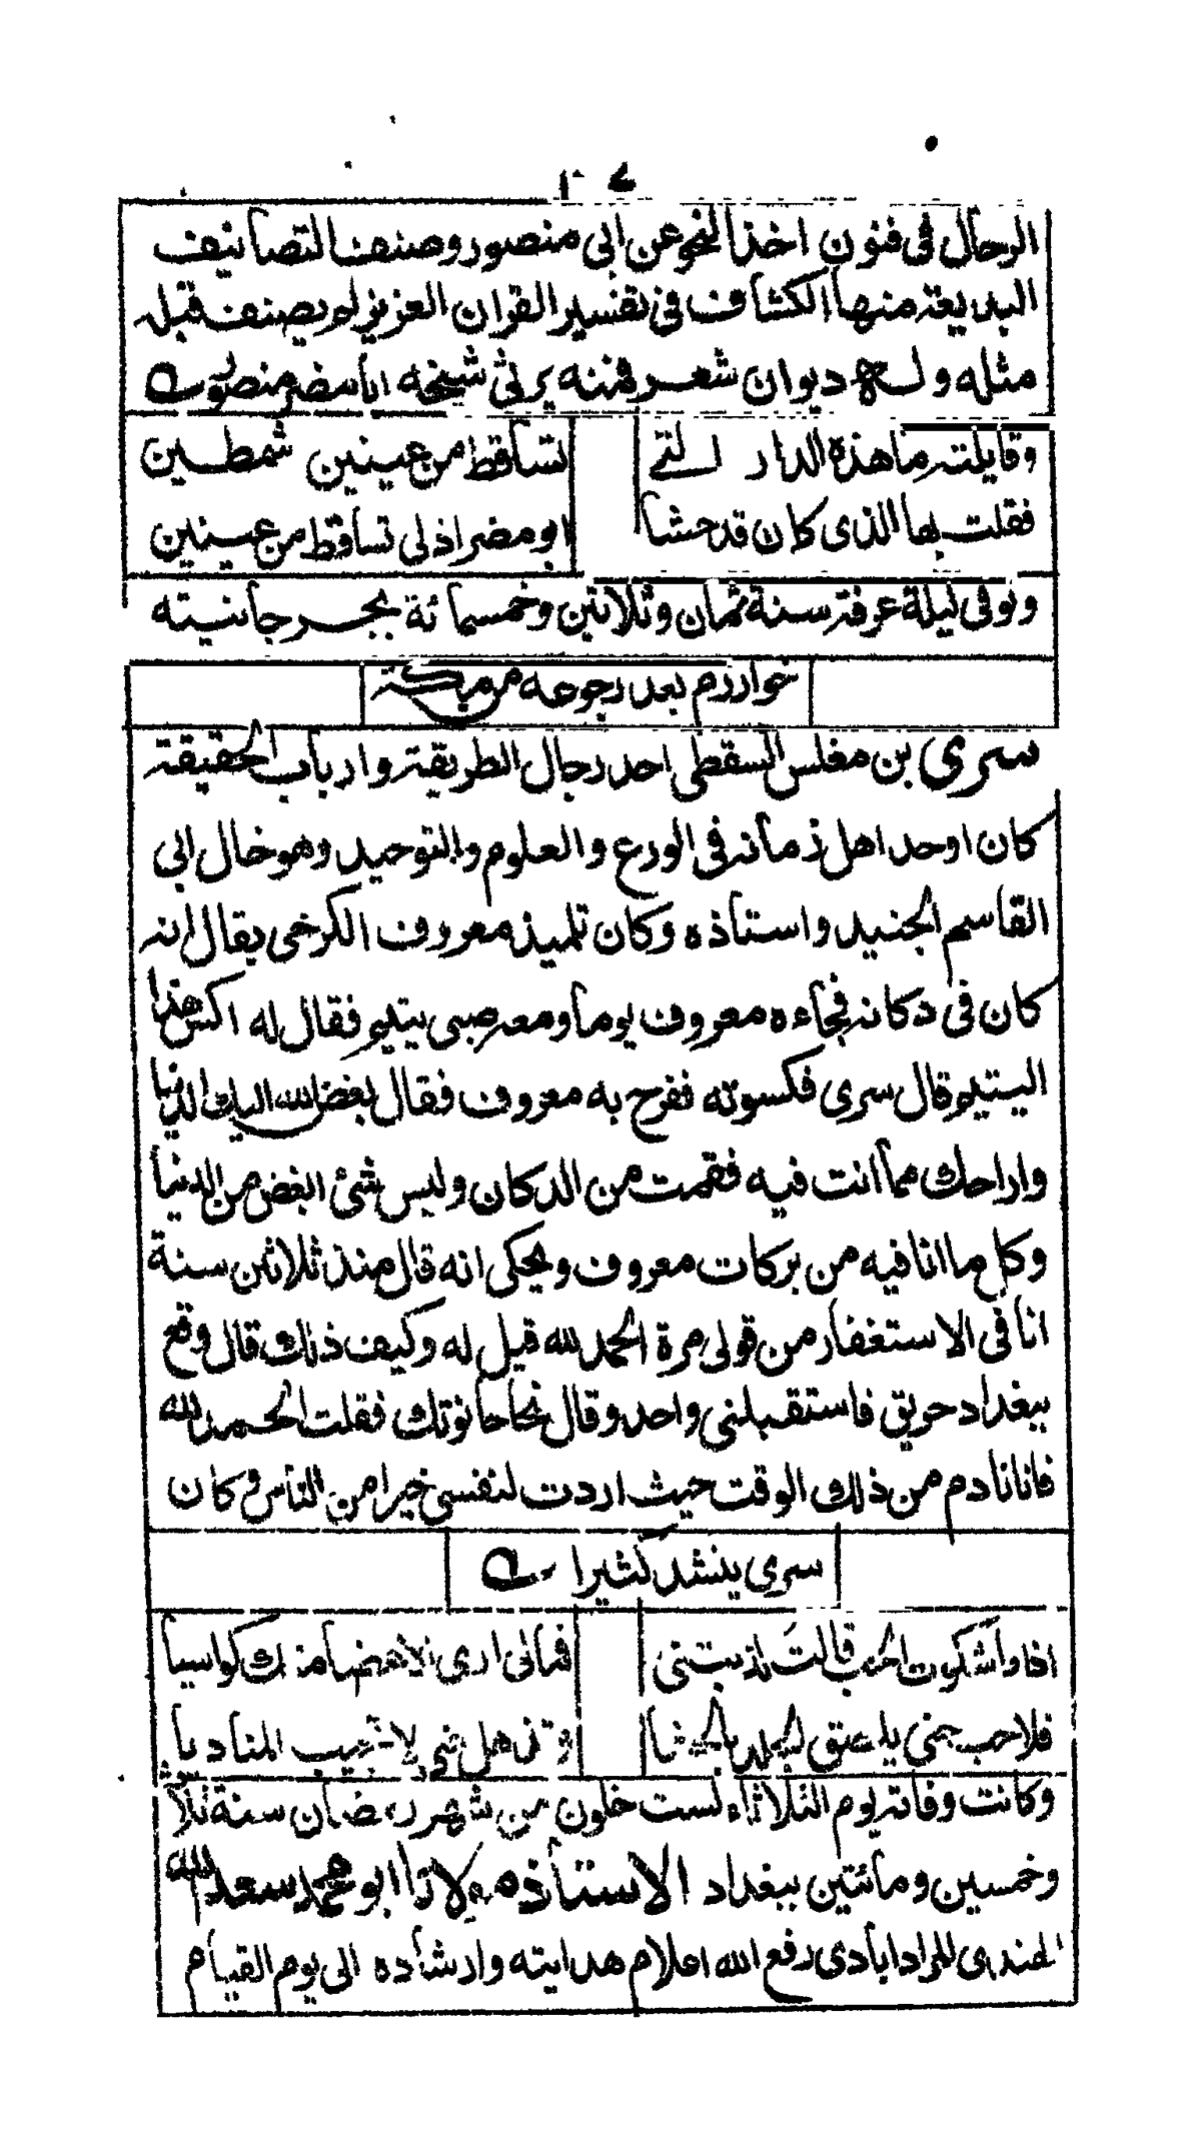 الرحال فى فنون اخذ النحو عن ابى منصور وصنف التصانيف
البديعة منها الكشاف فى تفسير القران العزيز لم يصنف قبله
مثله وله ديوان شعر فمنه يرثى شيخه ابا مضر منصور
وقايلة ما هذه الدار التى تساقط من عينين شمطين
فقلت بها الذى كان قد حشا ابو مضر اذنى تساقط من عينين
وتوفى ليلة عرفة سنة ثمان وثلاثين وخمسمائة بجرجانيته
خوارزم بعد رجوعه من مكة
سرى بن مغلس السقطى احد رجال الطريقة وارباب الحقيقة
كان اوحد اهل زمانه فى الورع والعلوم والتوحيد وهو خال ابى
القاسم الجنيد واستاذه وكان تلميذ معروف الكرخى يقال انه
كان فى دكانه فجاءه معروف يوما ومعه صبى يتيم فقال له اكس هذا
اليتيم قال سرى فكسوته ففرح به معروف فقال بغض الله اليك الدنيا
واراحك مما انت فيه فقمت من الدكان وليس شئ ابغض من الدنيا
وكل ما انا فيه من بركات معروف ويحكى انه قال منذ ثلاثين سنة
انا فى الاستغفار من قولى مرة الحمد لله قيل له وكيف ذلك قال وقع
ببغداد حريق فاستقبلنى واحد وقال نجا حانوتك فقلت الحمد لله
فانا نادم من ذلك الوقت حيث اردت لنفسى خيرا من الناس وكان
سرى ينشد كثيرا
اذا ما شكوت الحب قالت كذبتنى فمالى ارى الاعضا منك كواسيا
فلا حب حتى يلصق الجلد بالحشا وتذهل حتى لا تجيب المناديا
وكانت وفاته يوم الثلاثاء لست خلون من شهر رمضان سنة ثلاث
وخمسين ومائتين ببغداد الاستاذ مولانا ابو محمد سعد الله
الهندى المرادابادى رفع الله اعلام هدايته وارشاده الى يوم القيام